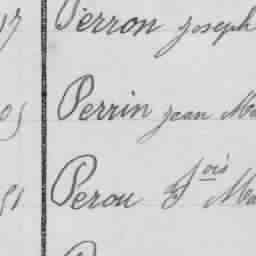 17 Perron Joseph
05 Perrin Jean Ma
51 Perou Fois Ma